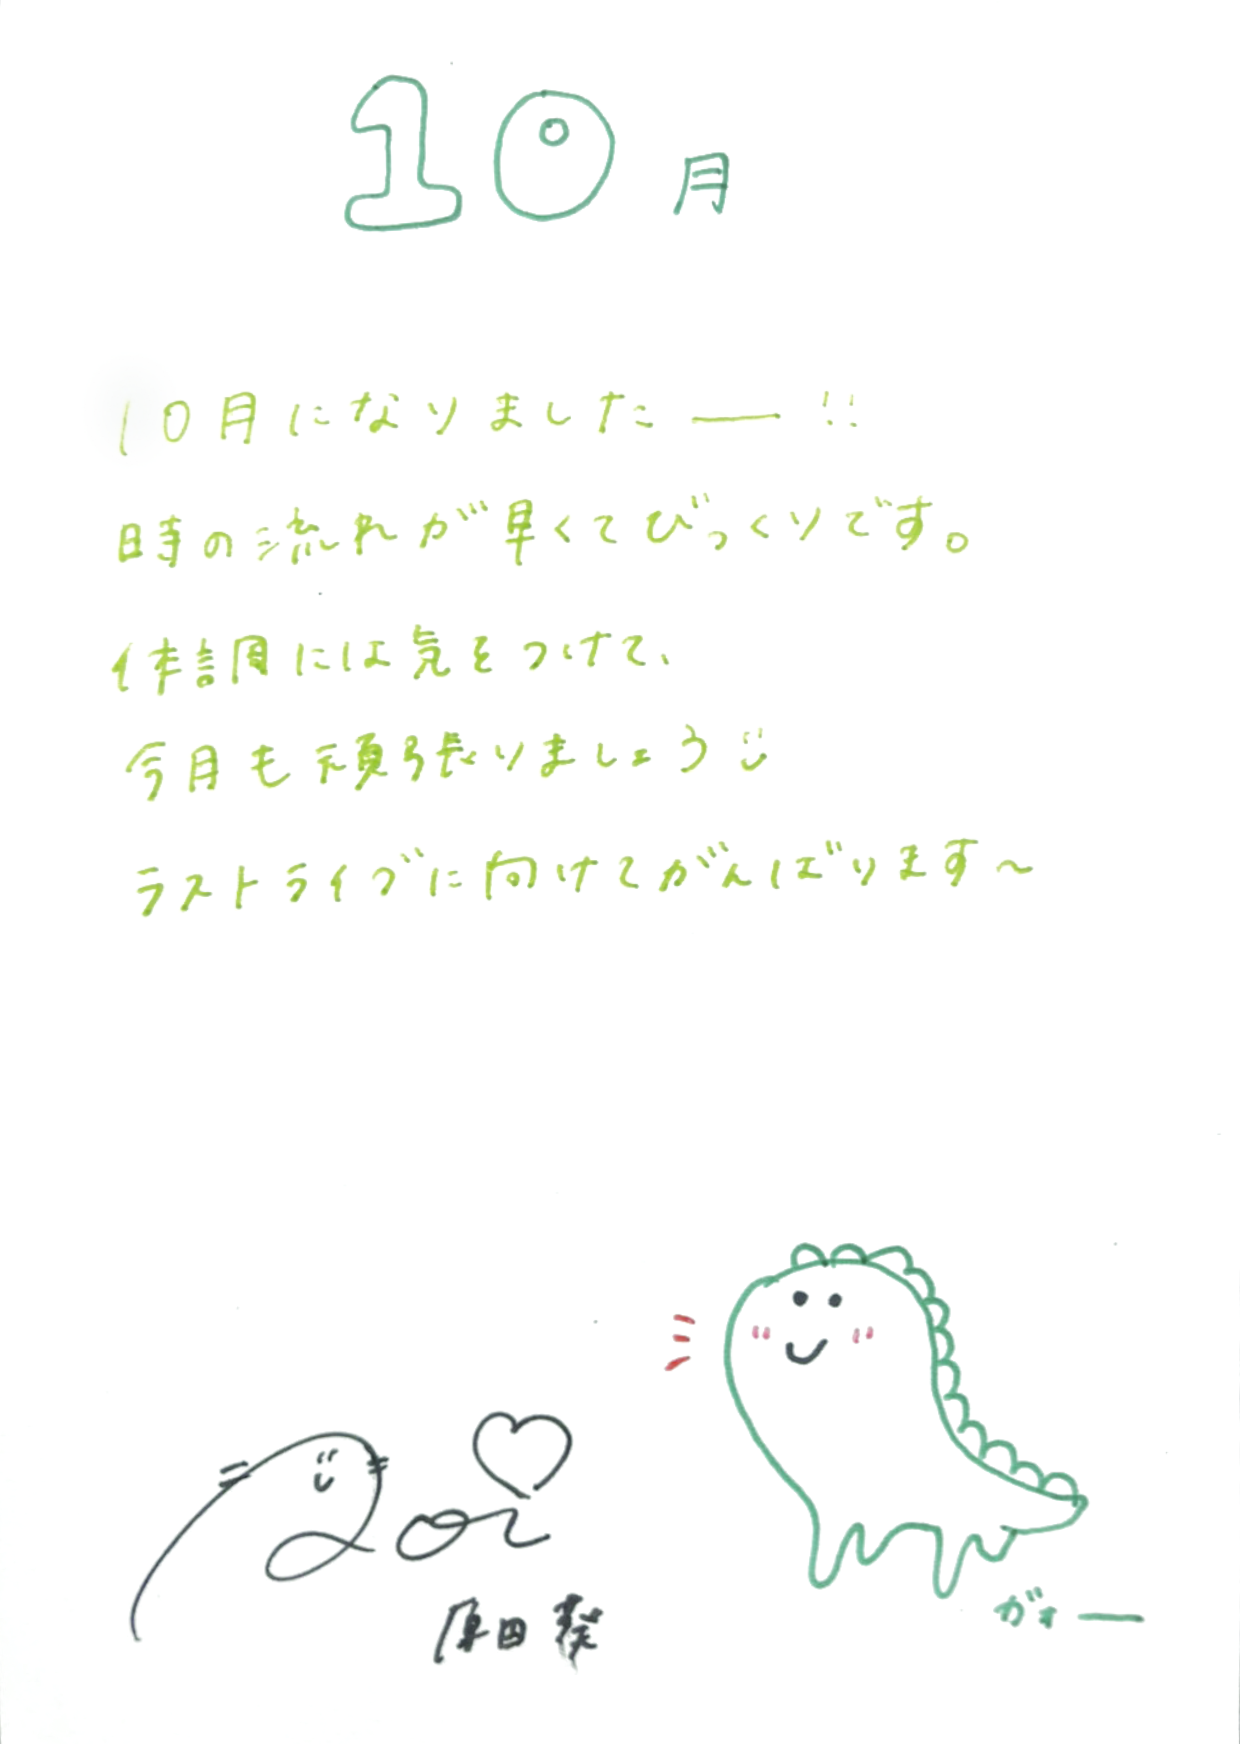 10月
10月になりましたー!!
時の流れが早くてびっくりです。
体調には気をつけて、
今月も頑張りましょう
ラストライブに向けてがんばります〜
Aoi
原田葵
ガオー